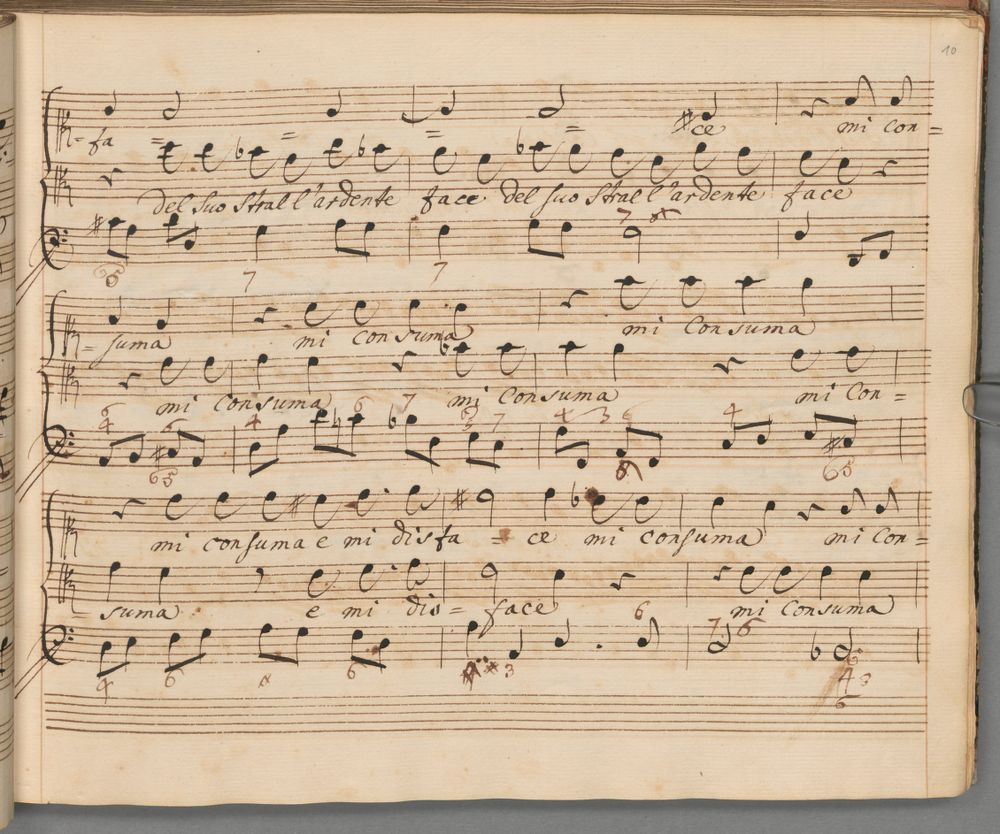 10
-fa = = = = ce mi con=
del suo stral l'ardente face del suo stral l'ardente face
7
5 7 7
=suma mi consuma mi consuma
mi consuma mi consuma mi con=
6 4 6 4 6 7 5 7 4 3 6 4
6 5 6 5
mi consuma e mi disfa = ce mi consuma mi con=
suma e mi dis= face mi consuma
6 7 6
4 6 6 3 6 4 3
6